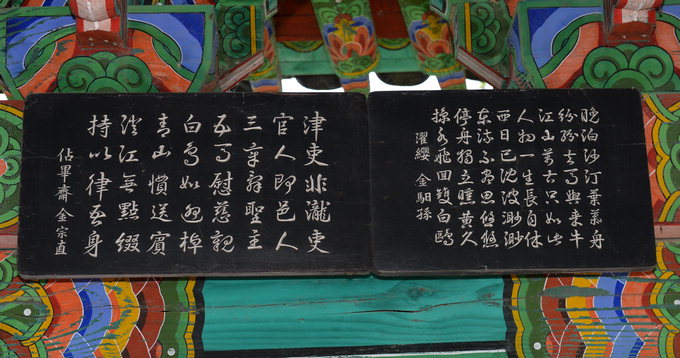 晩泊沙汀葉葉舟
紛紛去馬與來牛
江山萬古只如此
人物一生長自休
西日已沈波渺渺
東流不盡思悠悠
停舟獨立曛黃久
掠水飛回雙白鷗
濯纓 金馹孫
津吏非瀧吏
官人卽邑人
三章辭聖主
五馬慰慈親
白鳥如迎棹
靑山慣送賓
澄江無點綴
持以律吾身
佔畢齋 金宗直